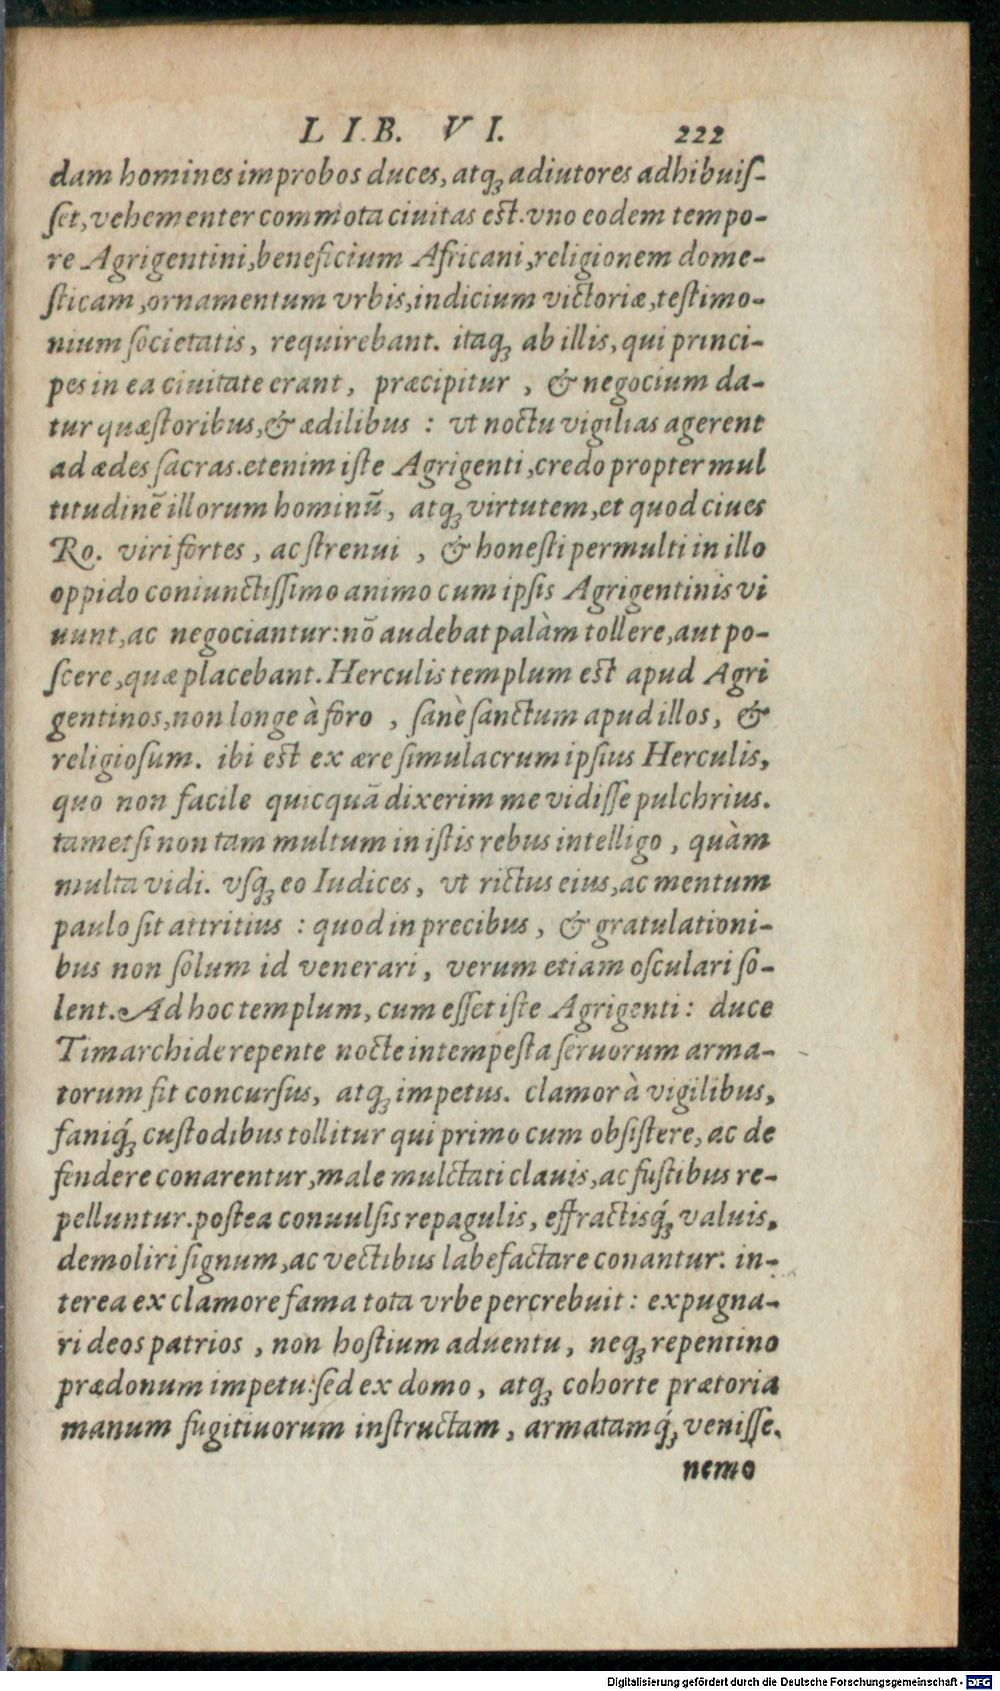 LIB. VI. 222
dam homines improbos duces, atq; adiutores adhibuiſ-
ſet, vehementer commota ciuitas est. vno eodem tempo-
re Agrigentini, beneficium Africani, religionem dome-
ſticam, ornamentum vrbis, indicium victoriæ, teſtimo-
nium ſocietatis, requirebant. itaq; ab illis, qui princi-
pes in ea ciuitate erant, præcipitur, & negocium da-
tur quæſtoribus, & ædilibus : vt noctu vigilias agerent
ad ædes ſacras. etenim iſte Agrigenti, credo propter mul
titudinē illorum hominū, atq; virtutem, et quod ciues
Ro. viri fortes, ac ſtrenui, & honeſti permulti in illo
oppido coniunctiſſimo animo cum ipſis Agrigentinis vi
uunt, ac negociantur: nō audebat palàm tollere, aut po-
ſcere, quæ placebant. Herculis templum est apud Agri
gentinos, non longe à foro, ſanè ſanctum apud illos, &
religioſum. ibi est ex ære ſimulacrum ipſius Herculis,
quo non facile quicquā dixerim me vidiſſe pulchrius.
tametſi non tam multum in iſtis rebus intelligo, quàm
multa vidi. vſq; eo Iudices, vt rictus eius, ac mentum
paulo ſit attritius : quod in precibus, & gratulationi-
bus non ſolum id venerari, verum etiam oſculari ſo-
lent. Ad hoc templum, cum eſſet iſte Agrigenti: duce
Timarchide repente nocte intempeſta ſeruorum arma-
torum fit concurſus, atq; impetus. clamor à vigilibus,
faniq́; cuſtodibus tollitur qui primo cum obſiſtere, ac de
fendere conarentur, male mulctati clauis, ac fuſtibus re-
pelluntur. poſtea conuulſis repagulis, effractisq́; valuis,
demoliri ſignum, ac vectibus labefactare conantur: in-
terea ex clamore fama tota vrbe percrebuit: expugna-
ri deos patrios, non hoſtium aduentu, neq; repentino
prædonum impetu: ſed ex domo, atq; cohorte prætoria
manum fugitiuorum inſtructam, armatamq́; veniſſe.
nemo
Digitalisierung gefördert durch die Deutsche Forschungsgemeinschaft - DFG